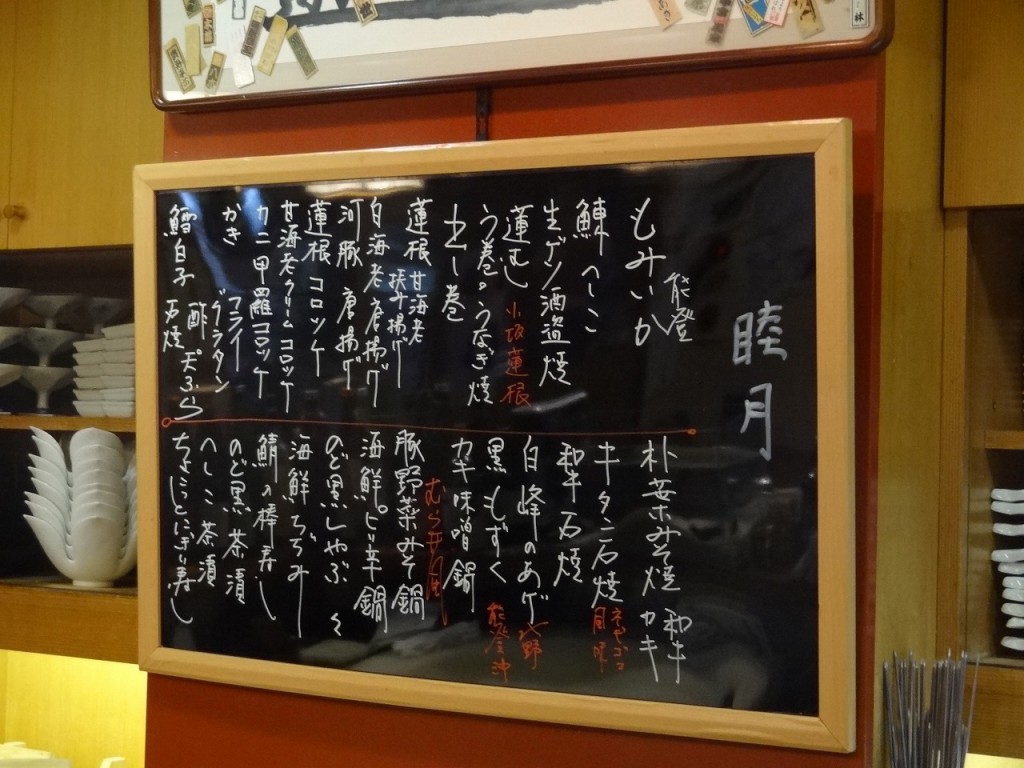 睦月
能登
もみいか
鰊へしこ
生ゲソ酒盗焼
蓮むし 小坂蓮根
う巻 うなぎ焼
だし巻
蓮根 甘海老
挟み揚げ
白海老唐揚げ
河豚 唐揚げ
蓮根コロッケ
甘海老クリームコロッケ
カニ甲羅コロッケ
かき フライ
グラタン
酢 天ぷら
鱈白子 石焼
朴葉みそ焼 和牛
カキ
牛タン石焼
和牛石焼
白峰のあげ
黒もずく 能登沖
カキ味噌鍋
むら井風
豚野菜みそ鍋
海鮮ピリ辛鍋
のど黒しゃぶ々
海鮮ちぢみ
鯖の棒寿し
のど黒茶漬
へしこ茶漬
ちょこっとにぎ寿し
林